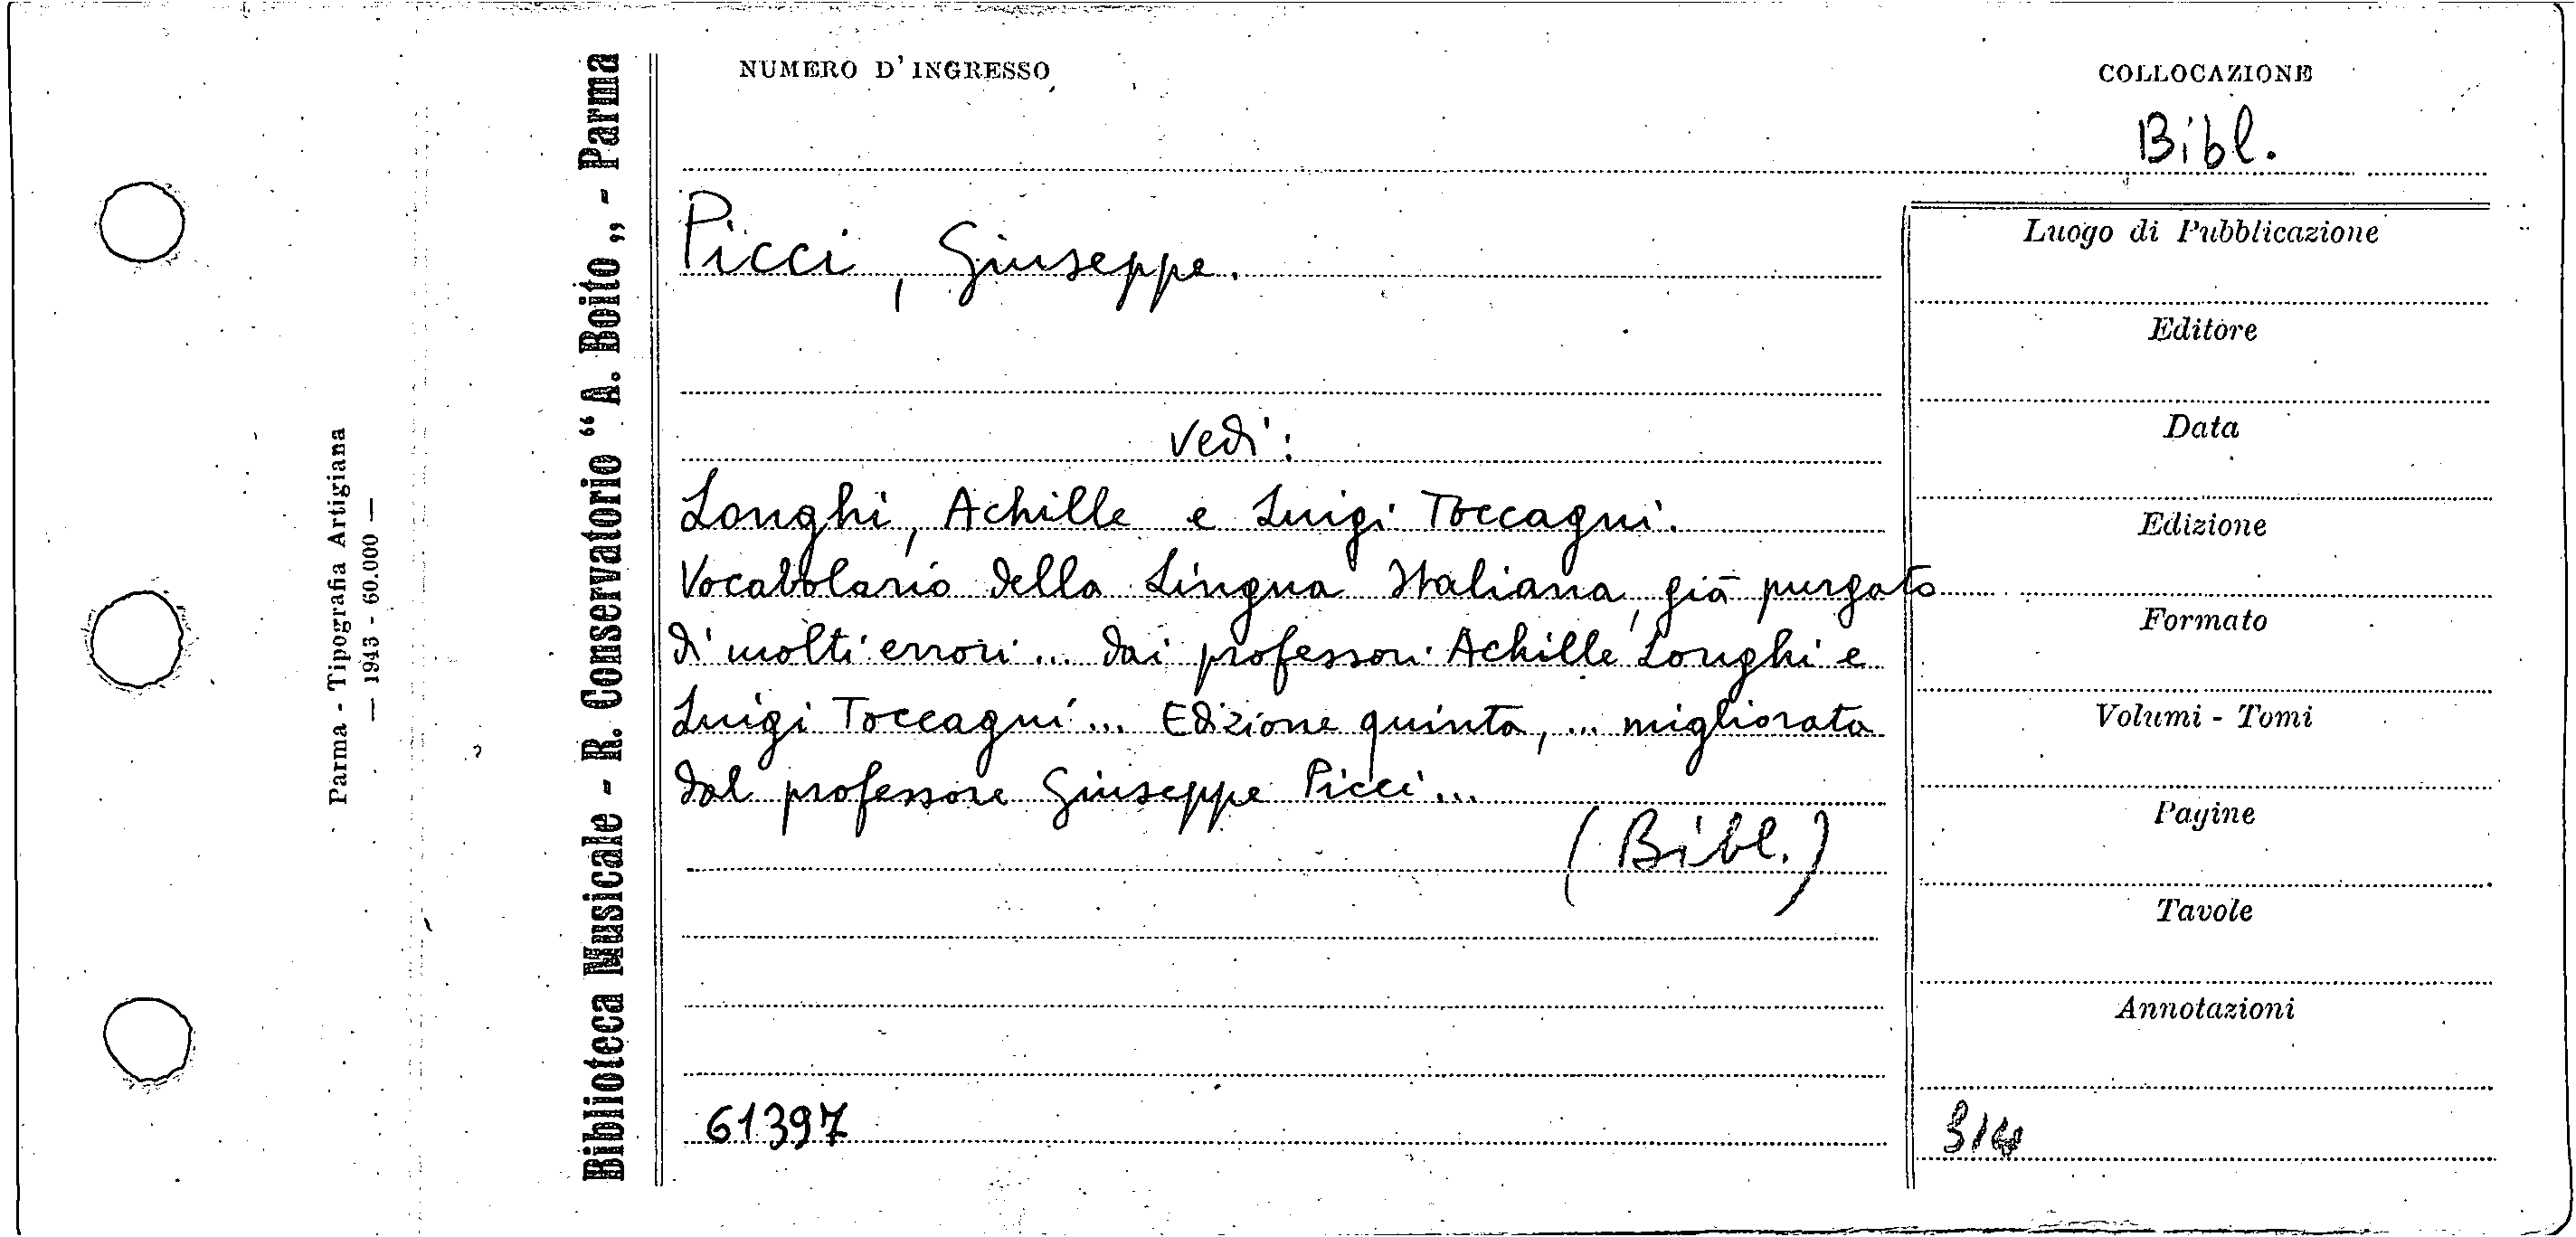 Parma - Tipografia Artigiana
— 1943 - 60.000 —
Biblioteca Musicale - R. Conservatorio “A. Boito„ - Parma
NUMERO D'INGRESSO
COLLOCAZIONE
Bibl.
Picci, Giuseppe.
vedi:
Longhi, Achille e Luigi Toccagni.
Vocabolario della Lingua Italiana, già purgato
di molti errori ... dai professori Achille Longhi e
Luigi Toccagni ... Edizione quinta, ... migliorata
dal professore Giuseppe Picci ...
(Bibl.)
61397
Luogo di Pubblicazione
Editore
Data
Edizione
Formato
Volumi - Tomi
Pagine
Tavole
Annotazioni